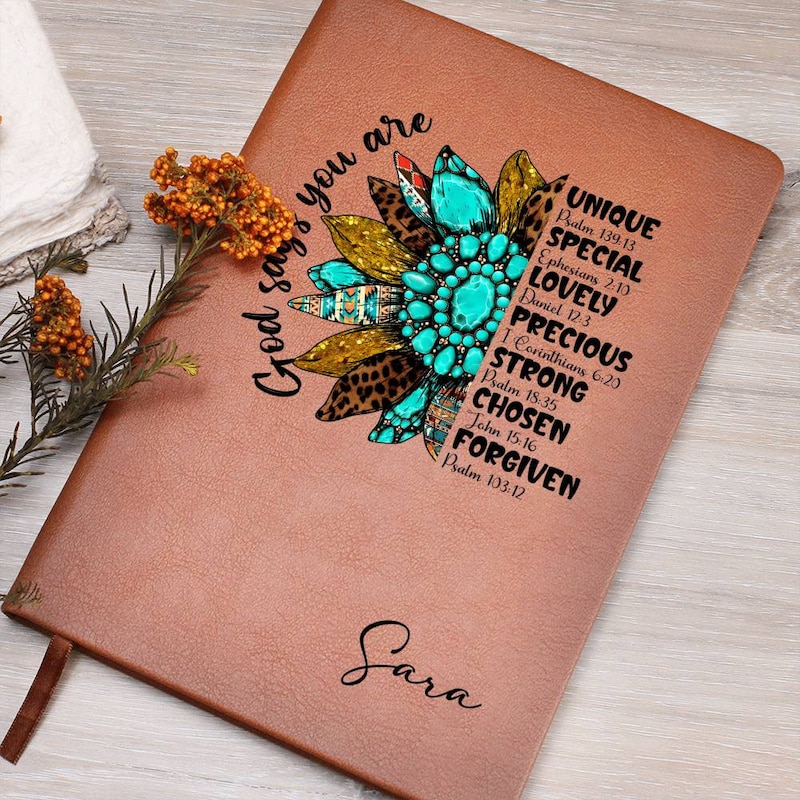 God says you are
UNIQUE
Psalm 139:13
SPECIAL
Ephesians 2:10
LOVELY
Daniel 12:3
PRECIOUS
1 Corinthians 6:20
STRONG
Psalm 18:35
CHOSEN
John 15:16
FORGIVEN
Psalm 103:12
Sara